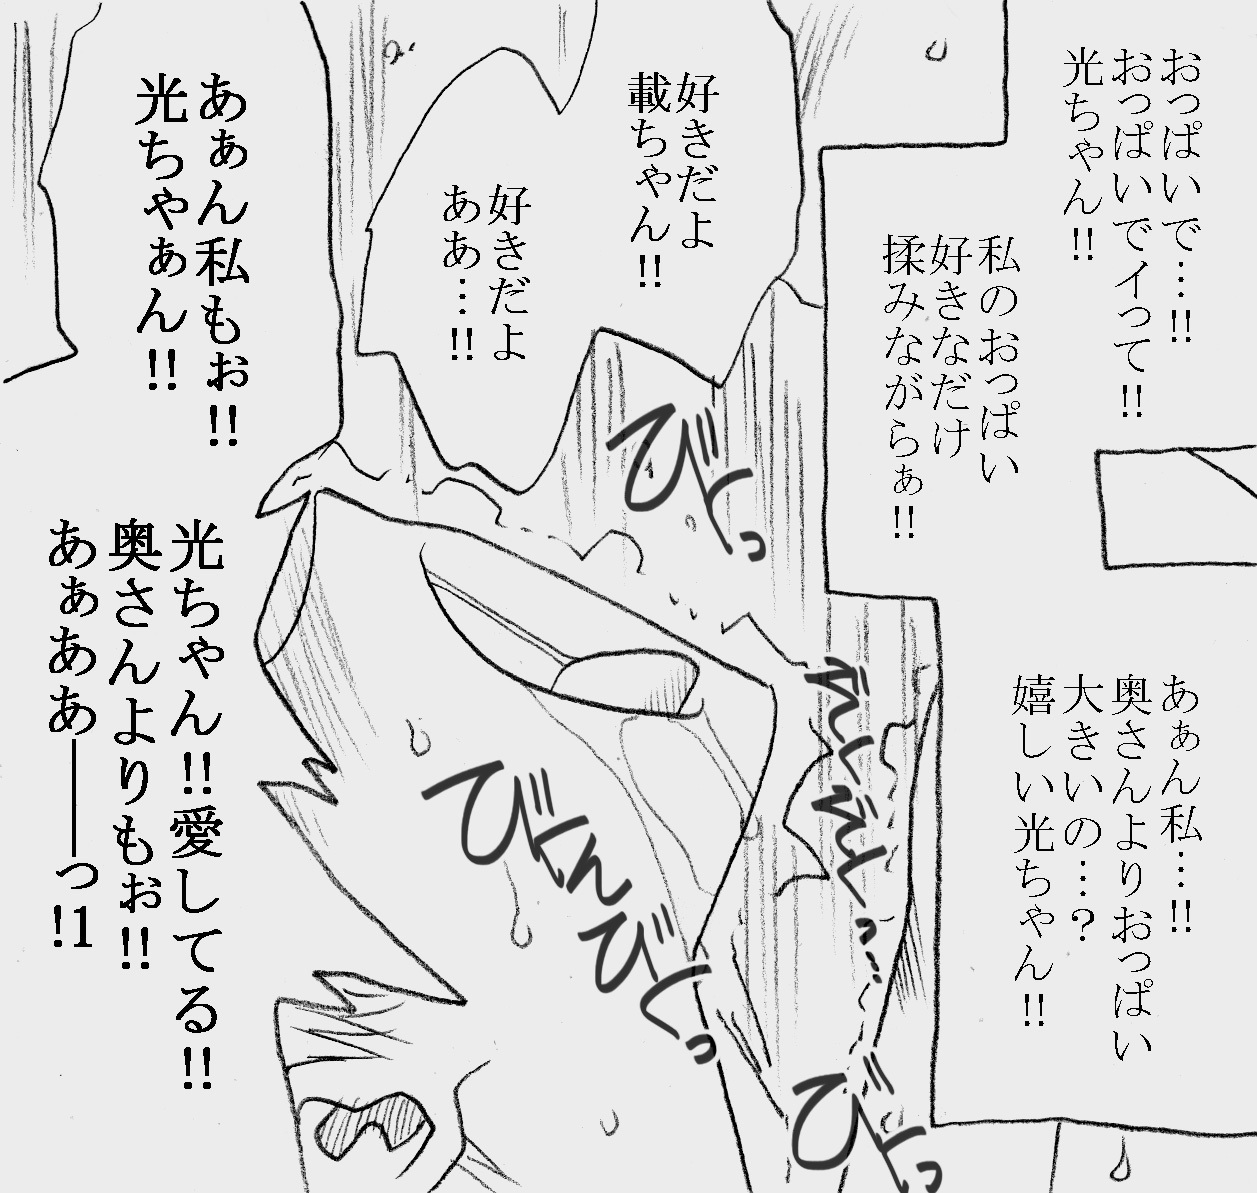 おっぱいで…!!
おっぱいでイって!!
光ちゃん!!
私のおっぱい
好きなだけ
揉みながらぁ!!
あぁん私…!!
奥さんよりおっぱい
大きいの…?
嬉しい光ちゃん!!
好きだよ
載ちゃん!!
好きだよ
ああ…!!
あぁん私もぉ!!
光ちゃぁん!!
光ちゃん!!愛してる!!
奥さんよりもぉ!!
あぁああ――っ!1
びくっ
びくんびくっ
びくっ